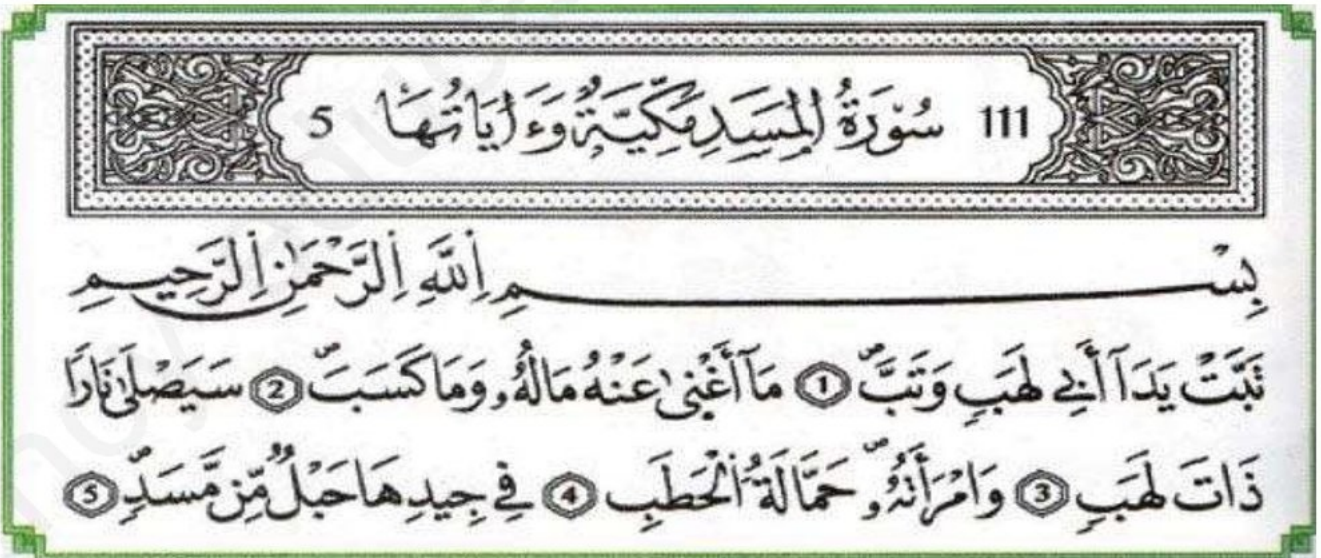 111 سُورَةُ الْمَسَدِ مَكِّيَّةٌ وَءَايَاتُهَا 5
بِسْمِ اِللَّهِ اِلرَّحْمَٰنِ اِلرَّحِيمِ
تَبَّتْ يَدَآ أَبِي لَهَبٍ وَتَبَّ 1 مَآ أَغْنَىٰ عَنْهُ مَالُهُۥ وَمَا كَسَبَ 2 سَيَصْلَىٰ نَارًا
ذَاتَ لَهَبٍ 3 وَامْرَأَتُهُۥ حَمَّالَةُ اُلْحَطَبِ 4 فِي جِيدِهَا حَبْلٌ مِّن مَّسَدٍ 5